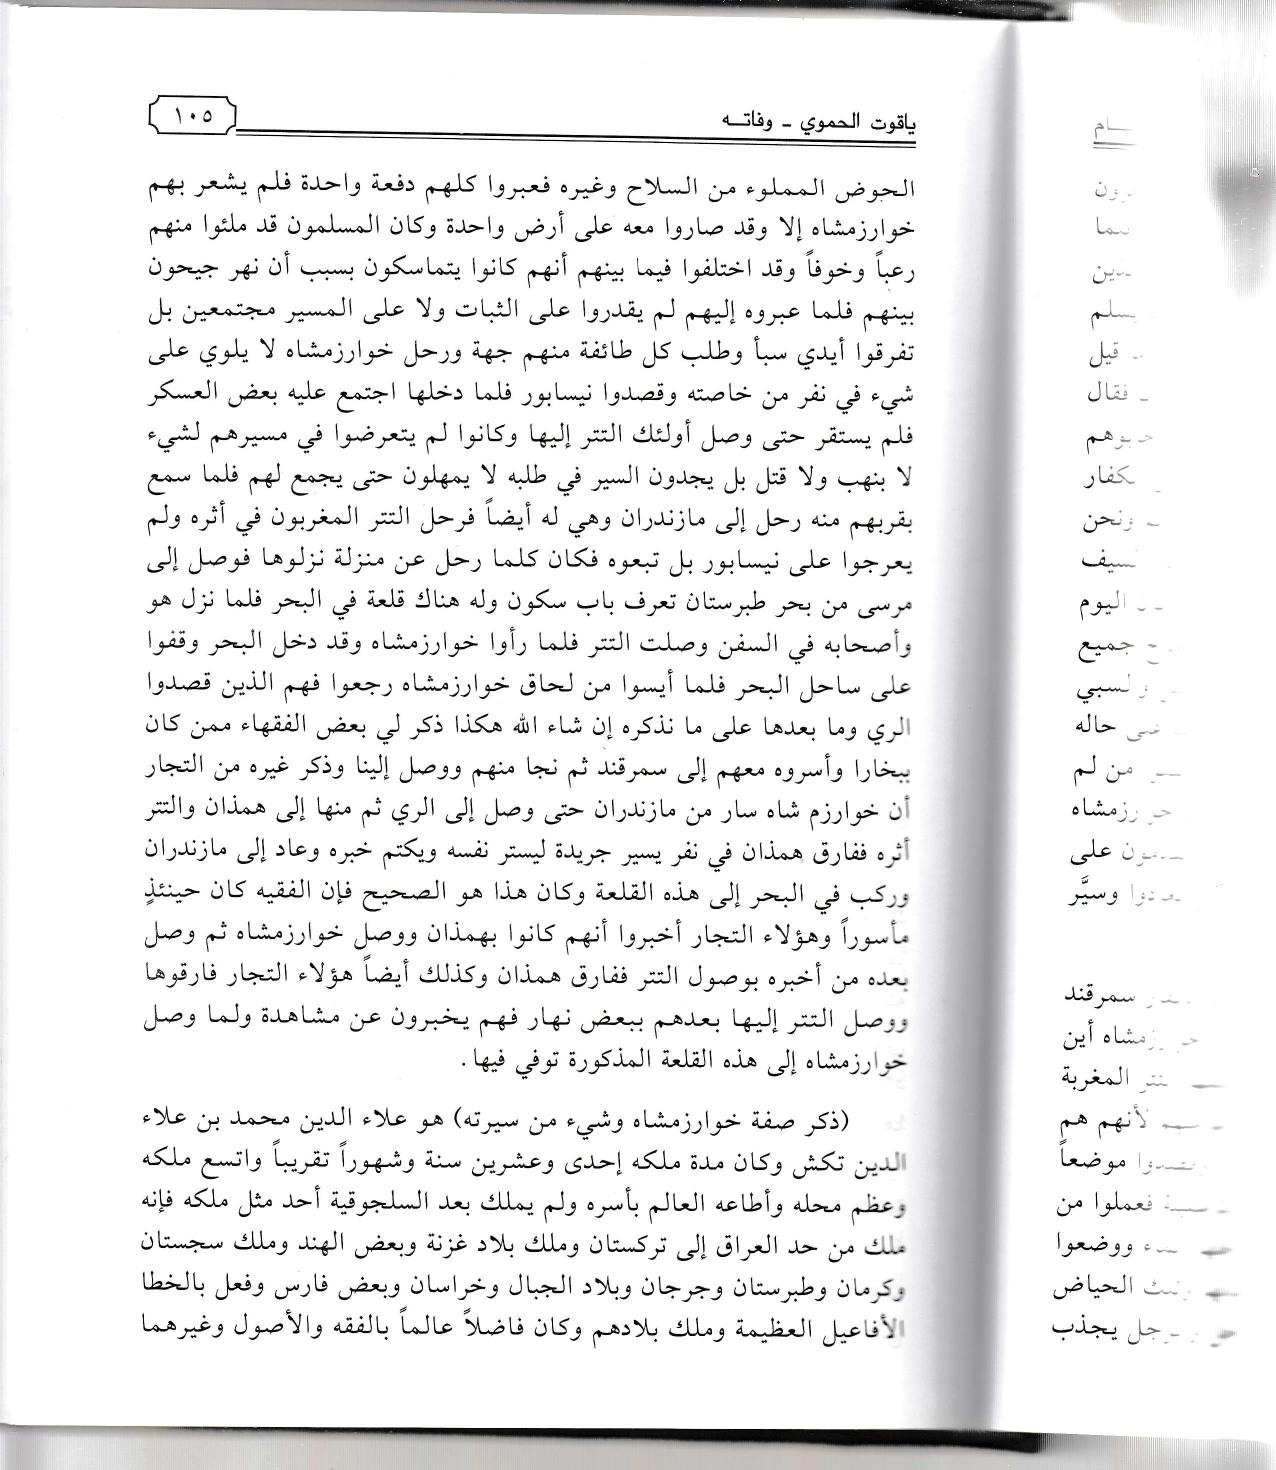 ياقوت الحموي ـ وفاتـه
١٠٥
الحوض المملوء من السلاح وغيره فعبروا كلهم دفعة واحدة فلم يشعر بهم
خوارزمشاه إلا وقد صاروا معه على أرض واحدة وكان المسلمون قد ملئوا منهم
رعباً وخوفاً وقد اختلفوا فيما بينهم أنهم كانوا يتماسكون بسبب أن نهر جيحون
بينهم فلما عبروه إليهم لم يقدروا على الثبات ولا على المسير مجتمعين بل
تفرقوا أيدي سبأ وطلب كل طائفة منهم جهة ورحل خوارزمشاه لا يلوي على
شيء في نفر من خاصته وقصدوا نيسابور فلما دخلها اجتمع عليه بعض العسكر
فلم يستقر حتى وصل أولئك التتر إليها وكانوا لم يتعرضوا في مسيرهم لشيء
لا بنهب ولا قتل بل يجدون السير في طلبه لا يمهلون حتى يجمع لهم فلما سمع
بقربهم منه رحل إلى مازندران وهي له أيضاً فرحل التتر المغربون في أثره ولم
يعرجوا على نيسابور بل تبعوه فكان كلما رحل عن منزلة نزلوها فوصل إلى
مرسى من بحر طبرستان تعرف باب سكون وله هناك قلعة في البحر فلما نزل هو
وأصحابه في السفن وصلت التتر فلما رأوا خوارزمشاه وقد دخل البحر وقفوا
على ساحل البحر فلما أيسوا من لحاق خوارزمشاه رجعوا فهم الذين قصدوا
الري وما بعدها على ما نذكره إن شاء الله هكذا ذكر لي بعض الفقهاء ممن كان
ببخارا وأسروه معهم إلى سمرقند ثم نجا منهم ووصل إلينا وذكر غيره من التجار
أن خوارزم شاه سار من مازندران حتى وصل إلى الري ثم منها إلى همذان والتتر
أثره ففارق همذان في نفر يسير جريدة ليستر نفسه ويكتم خبره وعاد إلى مازندران
وركب في البحر إلى هذه القلعة وكان هذا هو الصحيح فإن الفقيه كان حينئذٍ
مأسوراً وهؤلاء التجار أخبروا أنهم كانوا بهمذان ووصل خوارزمشاه ثم وصل
بعده من أخبره بوصول التتر ففارق همذان وكذلك أيضاً هؤلاء التجار فارقوها
ووصل التتر إليها بعدهم ببعض نهار فهم يخبرون عن مشاهدة ولما وصل
خوارزمشاه إلى هذه القلعة المذكورة توفي فيها.
(ذكر صفة خوارزمشاه وشيء من سيرته) هو علاء الدين محمد بن علاء
الدين تكش وكان مدة ملكه إحدى وعشرين سنة وشهوراً تقريباً واتسع ملكه
وعظم محله وأطاعه العالم بأسره ولم يملك بعد السلجوقية أحد مثل ملكه فإنه
ملك من حد العراق إلى تركستان وملك بلاد غزنة وبعض الهند وملك سجستان
وكرمان وطبرستان وجرجان وبلاد الجبال وخراسان وبعض فارس وفعل بالخطا
الأفاعيل العظيمة وملك بلادهم وكان فاضلاً عالماً بالفقه والأصول وغيرهما
قيل
فقال
ونحن
اليوم
جميع
حاله
من لم
على
وسيَّر
سمرقند
أين
المغربة
لأنهم هم
موضعاً
فعملوا من
ووضعوا
الحياض
يجذب